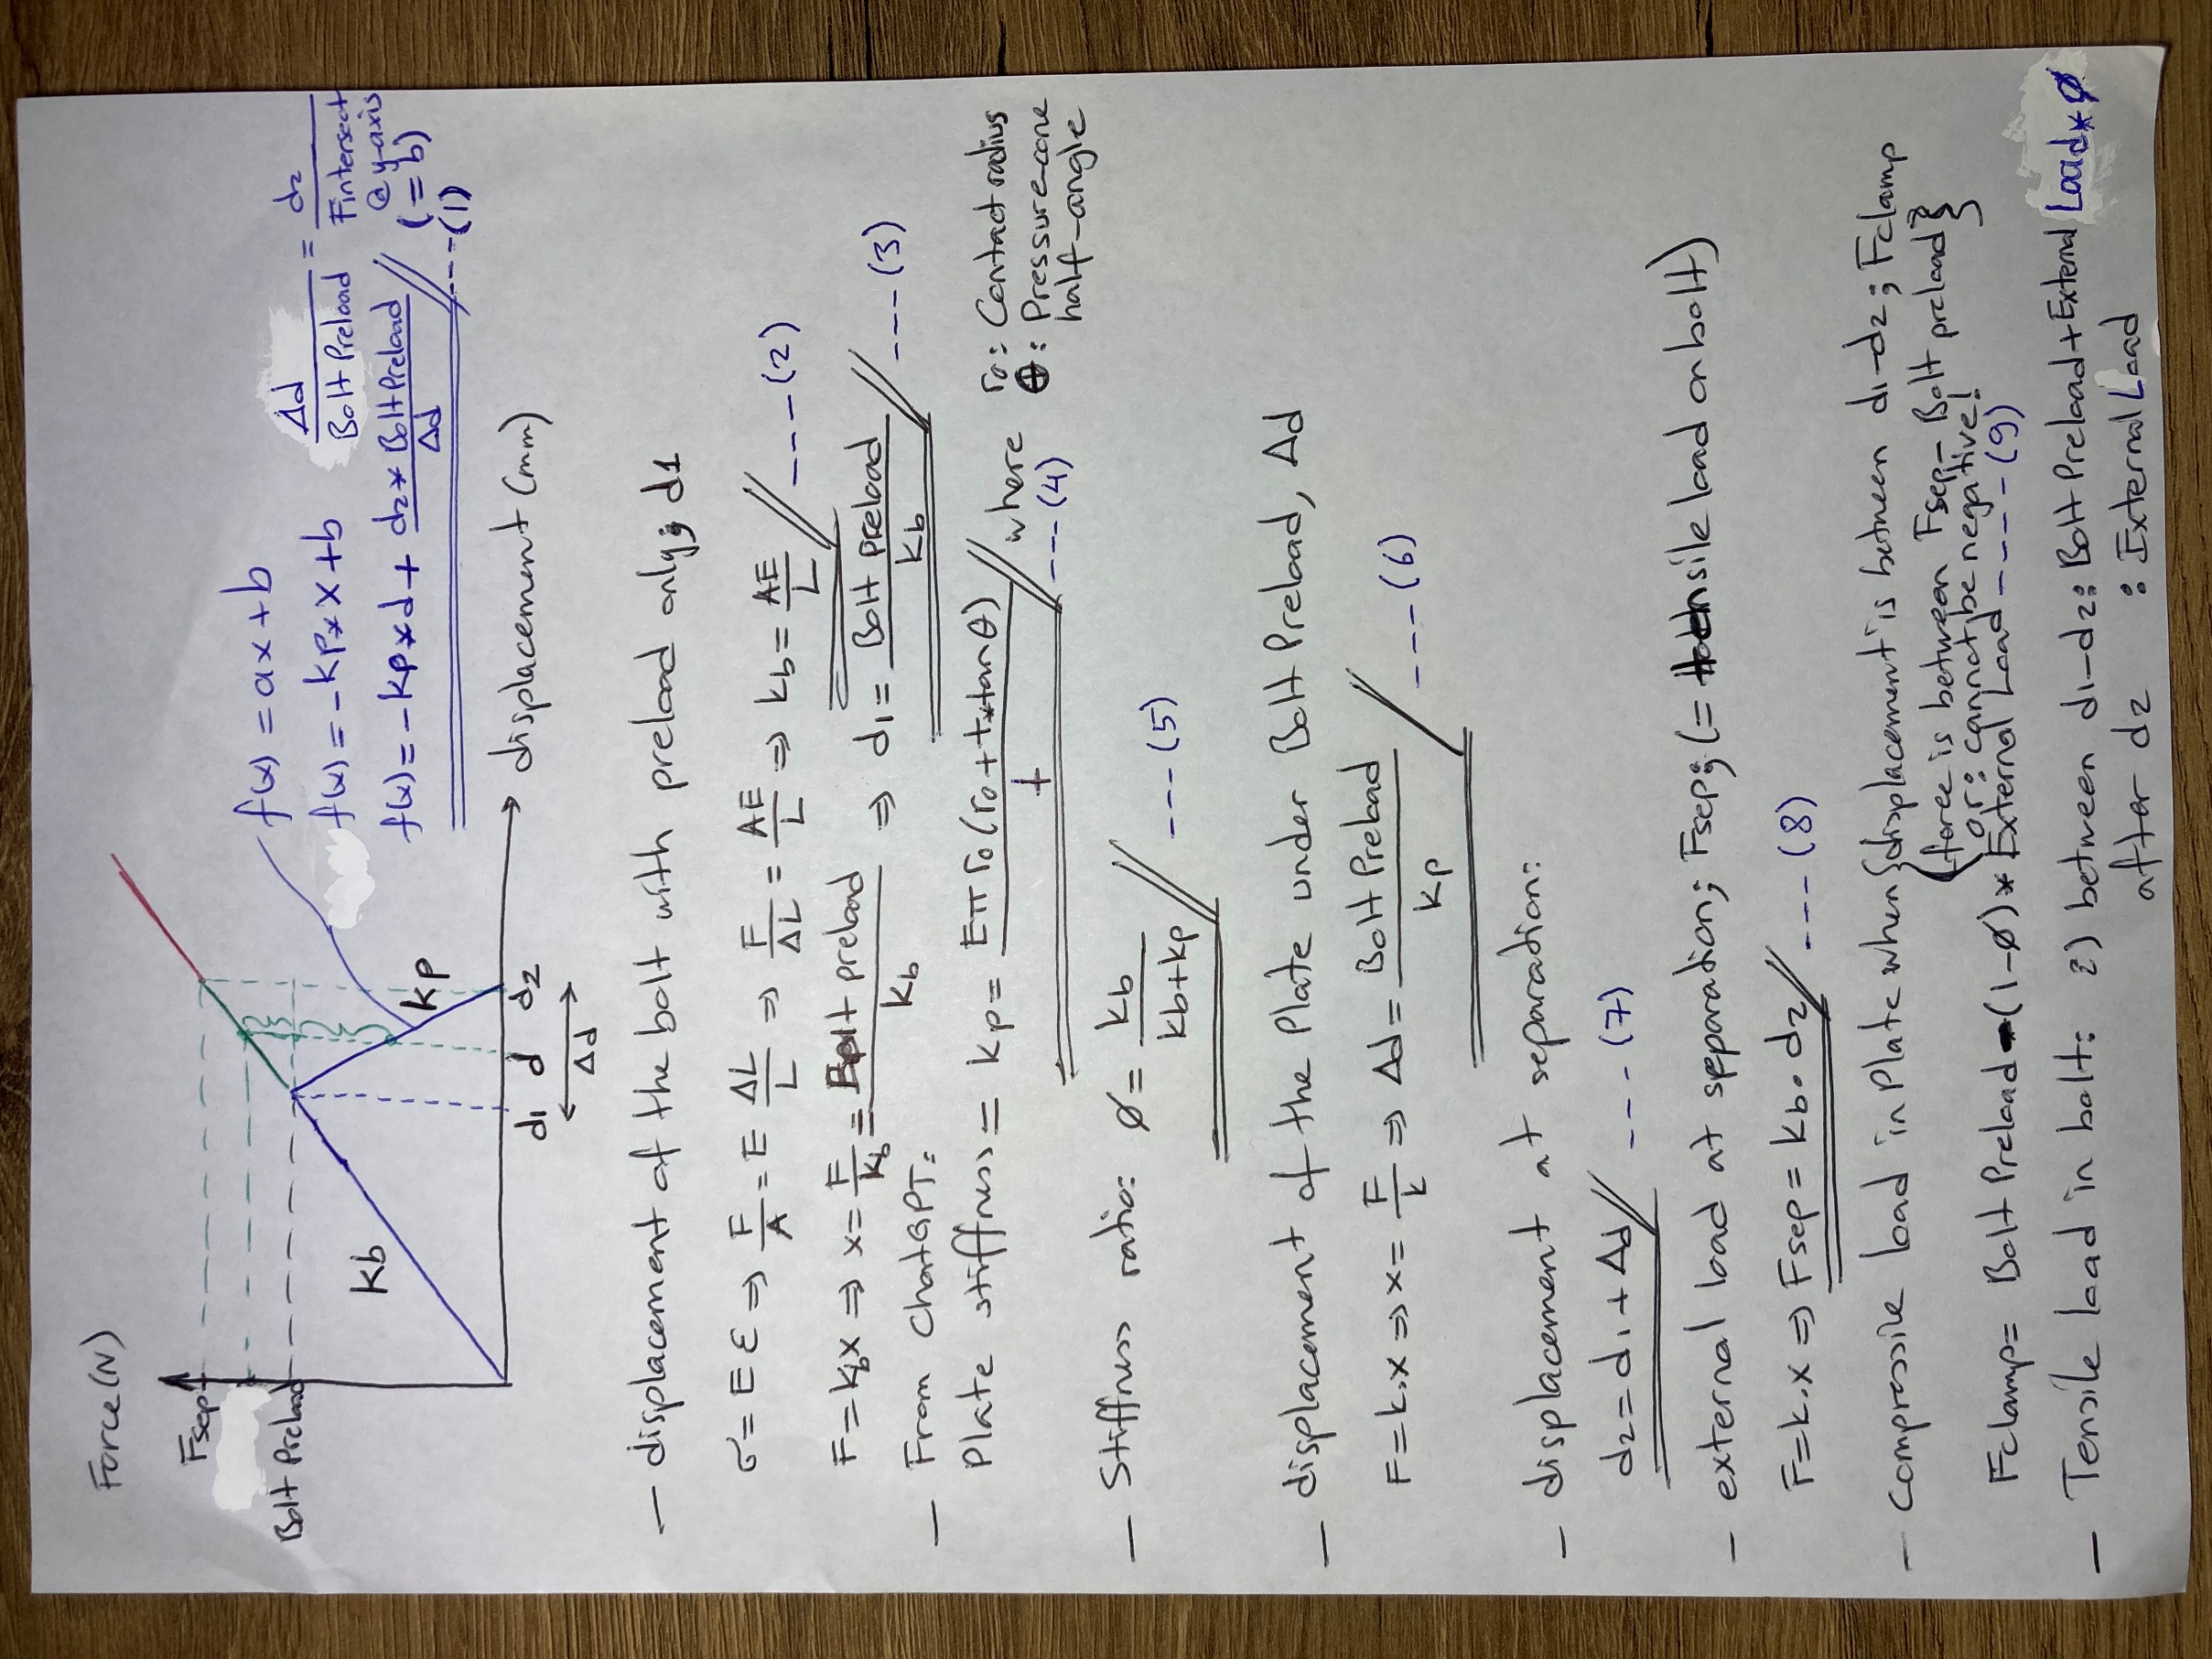 Force(N)
Fsep
Bolt Preload
kb
kp
d1 d d2
Δd
displacement (mm)
f(x) = ax + b
f(x) = -kp*x + b
f(x) = -kp*d + d2*Bolt Preload / Δd ---(1)
Δd / Bolt Preload = d2 / Fintersect @y-axis (=b)
- displacement of the bolt with preload only; d1
σ = E ε ⇒ F/A = E ΔL/L ⇒ F/ΔL = AE/L ⇒ kb = AE/L ---(2)
F = kb x ⇒ x = F/kb = Bolt preload / kb ⇒ d1 = Bolt preload / kb ----(3)
- From ChatGPT:
Plate stiffness = kp = Eπr0(r0 + t*tanθ) / t where ---(4)
r0: Contact radius
θ: Pressure-cone
half-angle
- Stiffness ratio: ø = kb / kb+kp ---(5)
- displacement of the Plate under Bolt Preload, Δd
F = k.x ⇒ x = F/k ⇒ Δd = Bolt Preload / kp ----(6)
- displacement at separation:
d2 = d1 + Δd ---(7)
- external load at separation; Fsep; (= tensile load on bolt)
F = k.x ⇒ Fsep = kb . d2 ---(8)
- Compressile load in Plate when {displacement is between d1-d2; Fclamp
{force is between Fsep-Bolt preload}
or: cannot be negative!
Fclamp = Bolt Preload - (1-ø) * External Load ---- (9)
- Tensile Load in bolt: 2) between d1-d2: Bolt Preload + External Load * ø
after d2 : External Load